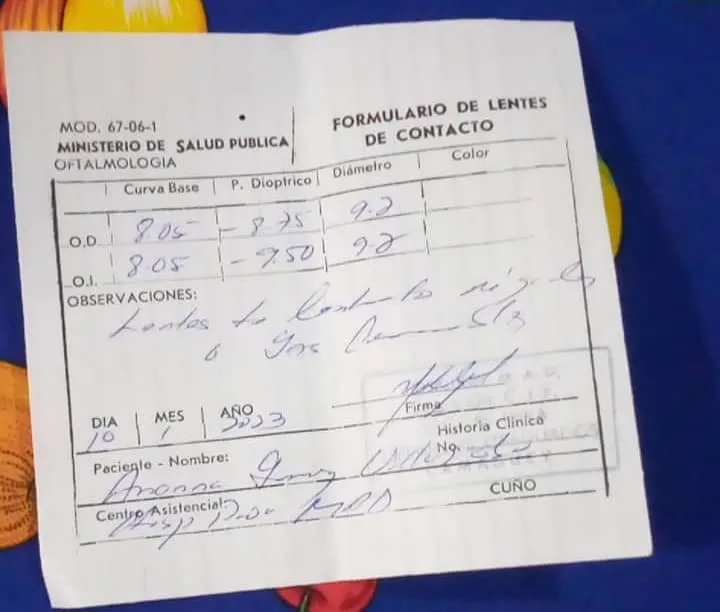 MOD. 67-06-1
MINISTERIO DE SALUD PUBLICA
OFTALMOLOGIA
FORMULARIO DE LENTES
DE CONTACTO
Curva Base P. Dioptrico Diámetro Color
O.D. 8.05 - 8.75 9.2
O.I. 8.05 - 9.50 9.2
OBSERVACIONES:
Lentes de Contacto
DIA MES AÑO
10 1 2023
Firma
Historia Clínica
No.
Paciente - Nombre:
Centro Asistencial:
CUÑO